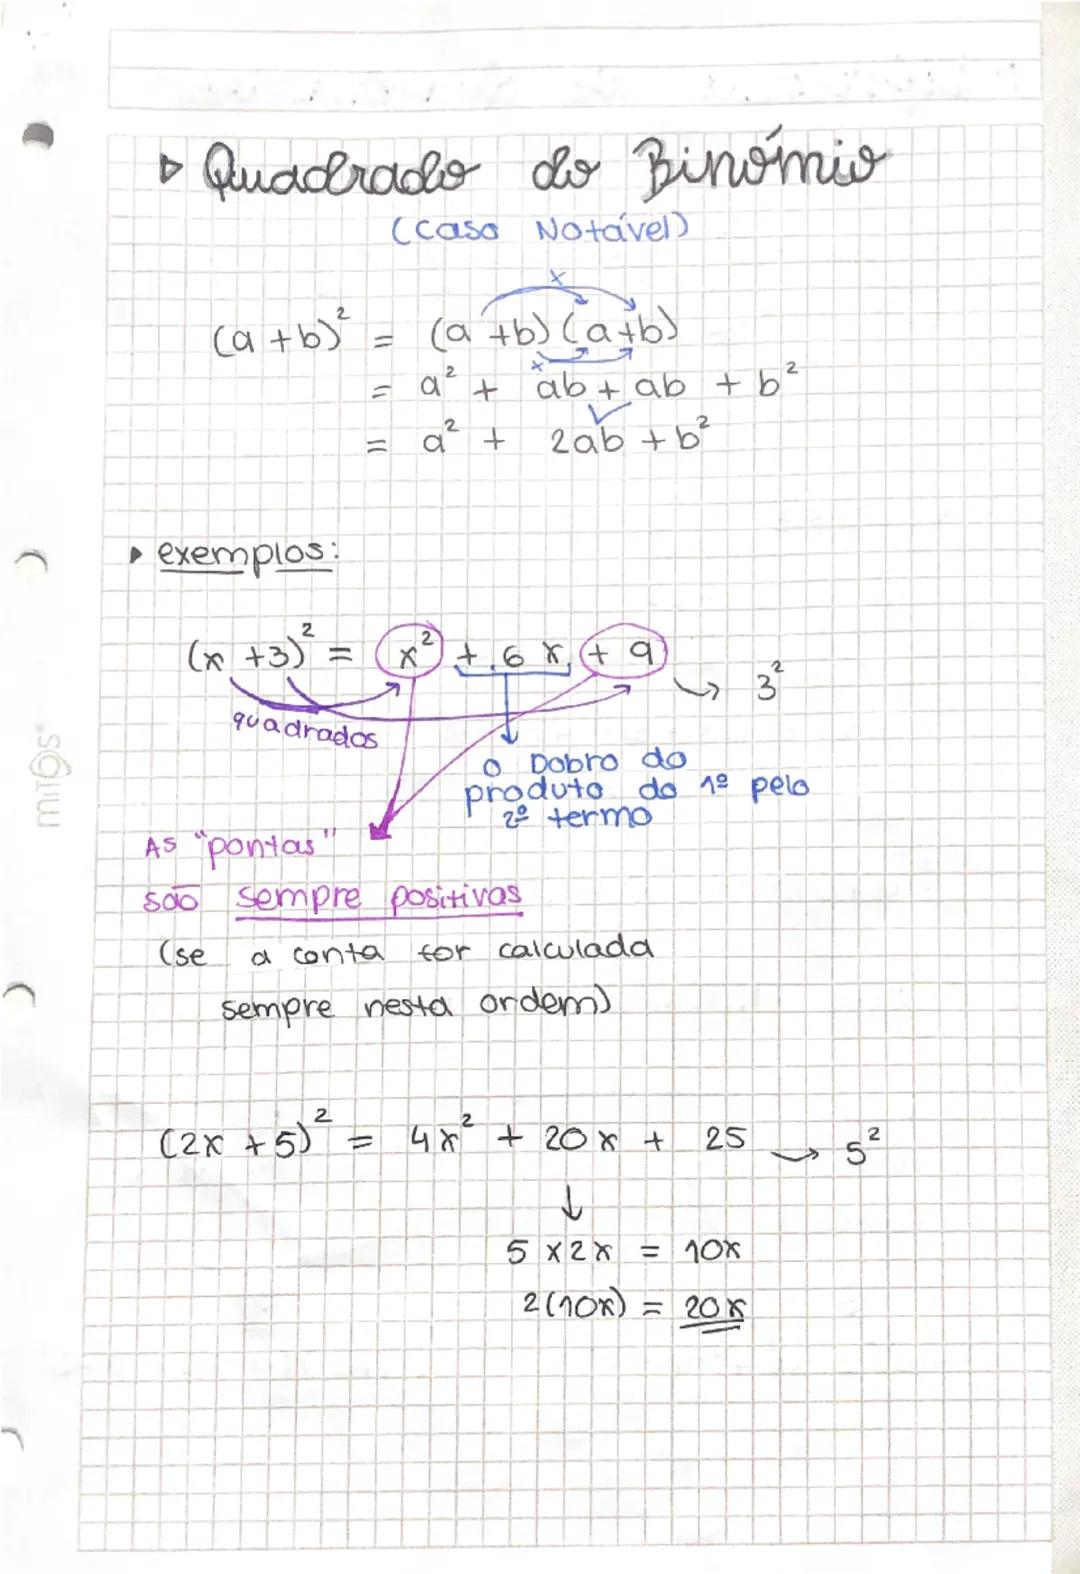 ▷ Quadrado do Binómio
(Caso Notável)
x
(a+b)² = (a+b)(a+b)
x
= a² + ab + ab + b²
= a² + 2ab + b²
▸ exemplos:
(x+3)² = x² + 6x + 9 → 3²
quadrados
o Dobro do
produto do 1º pelo
2º termo
As "pontas"
são sempre positivas
(se a conta for calculada
sempre nesta ordem)
(2x+5)² = 4x² + 20x + 25 → 5²
↓
5 x 2x = 10x
2(10x) = 20x
mitos